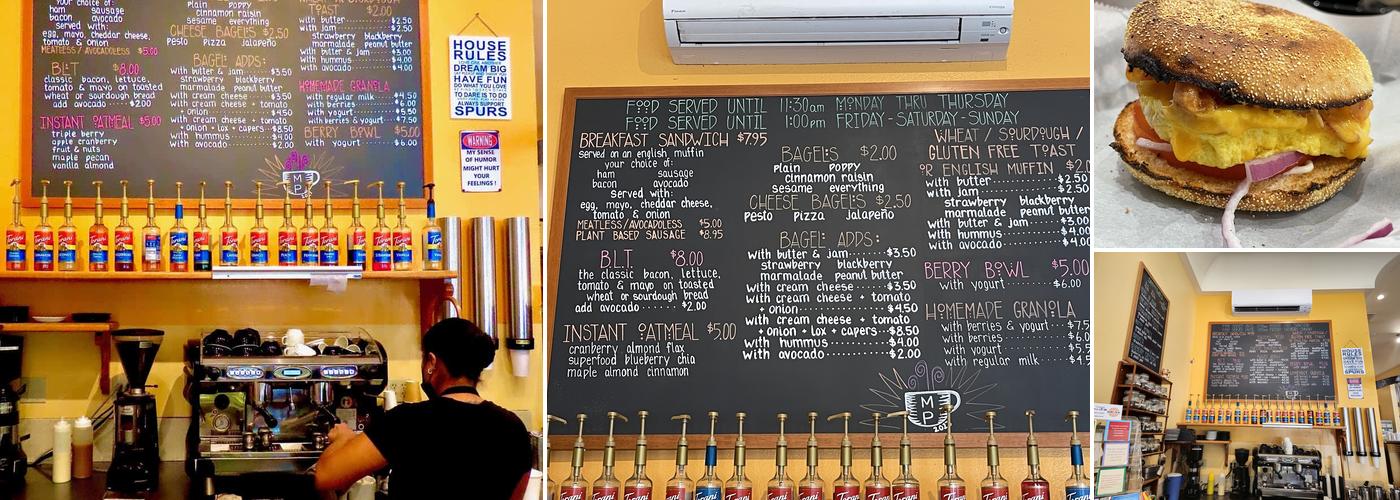 your choice of:
ham sausage
bacon avocado
served with:
egg, mayo, cheddar cheese,
tomato & onion
MEATLESS/AVOCADOLESS $5.00
B.L.T $8.00
classic bacon, lettuce,
tomato & mayo on toasted
wheat or sourdough bread
add avocado $2.00
INSTANT OATMEAL $5.00
triple berry
apple cranberry
fruit & nuts
maple pecan
vanilla almond
plain poppy
cinnamon raisin
sesame everything
CHEESE BAGELS $2.50
Pesto Pizza Jalapeño
BAGEL ADDS:
with butter & jam $3.50
strawberry blackberry
marmalade peanut butter
with cream cheese $3.50
with cream cheese + tomato
+ onion $4.50
with cream cheese + tomato
+ onion + lox + capers $8.50
with hummus $4.00
with avocado $2.00
TOAST
with butter $2.50
with jam $2.50
strawberry blackberry
marmalade peanut butter
with butter & jam $3.00
with hummus $4.00
with avocado $4.00
HOMEMADE GRANOLA
with regular milk $4.50
with berries $6.00
with yogurt $5.50
with berries & yogurt $7.50
BERRY BOWL $5.00
with yogurt $6.00
MP
HOUSE
RULES
DREAM BIG
HAVE FUN
DO WHAT YOU LOVE
ALWAYS SUPPORT
SPURS
WARNING
MY SENSE
OF HUMOR
MIGHT HURT
YOUR
FEELINGS!
Torani
FOOD SERVED UNTIL 11:30am MONDAY THRU THURSDAY
FOOD SERVED UNTIL 1:00pm FRIDAY-SATURDAY-SUNDAY
BREAKFAST SANDWICH $7.95
served on an english muffin
your choice of:
ham sausage
bacon avocado
served with:
egg, mayo, cheddar cheese,
tomato & onion
MEATLESS/AVOCADOLESS $5.00
PLANT BASED SAUSAGE $8.95
B.L.T. $8.00
the classic bacon, lettuce,
tomato & mayo on toasted
wheat or sourdough bread
add avocado $2.00
INSTANT OATMEAL $5.00
cranberry almond flax
superfood blueberry chia
maple almond cinnamon
BAGELS $2.00
Plain poppy
cinnamon raisin
sesame everything
CHEESE BAGELS $2.50
Pesto Pizza Jalapeño
BAGEL ADDS:
with butter & jam $3.50
strawberry blackberry
marmalade peanut butter
with cream cheese $3.50
with cream cheese + tomato
+ onion $4.50
with cream cheese + tomato
+ onion + lox + capers $8.50
with hummus $4.00
with avocado $2.00
WHEAT / SOURDOUGH /
GLUTEN FREE TOAST
OR ENGLISH MUFFIN $2.0
with butter $2.50
with jam $2.50
strawberry blackberry
marmalade peanut butter
with butter & jam $3.00
with hummus $4.00
with avocado $4.00
BERRY BOWL $5.00
with yogurt $6.00
HOMEMADE GRANOLA
with berries & yogurt $7.5
with berries $6.0
with yogurt $5.5
with regular milk $4.5
MP
Torani
HOUSE
RULES